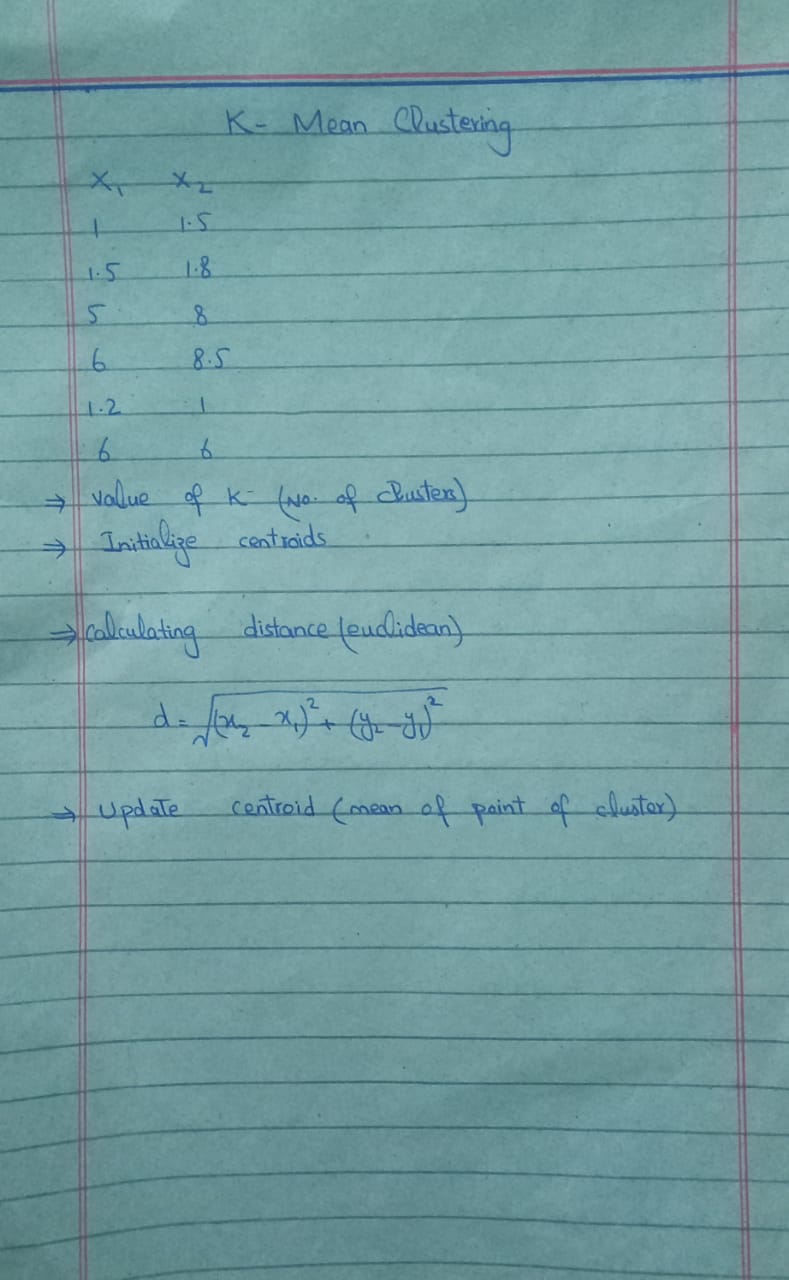 K- Mean Clustering
X₁ X₂
1 1.5
1.5 1.8
5 8
6 8.5
1.2 1
6 6
⇒ value of K- (No. of clusters)
⇒ Initialize centroids
⇒ Calculating distance (euclidean)
d = √(x₂ - x₁)² + (y₂ - y₁)²
⇒ Update centroid (mean of point of cluster)